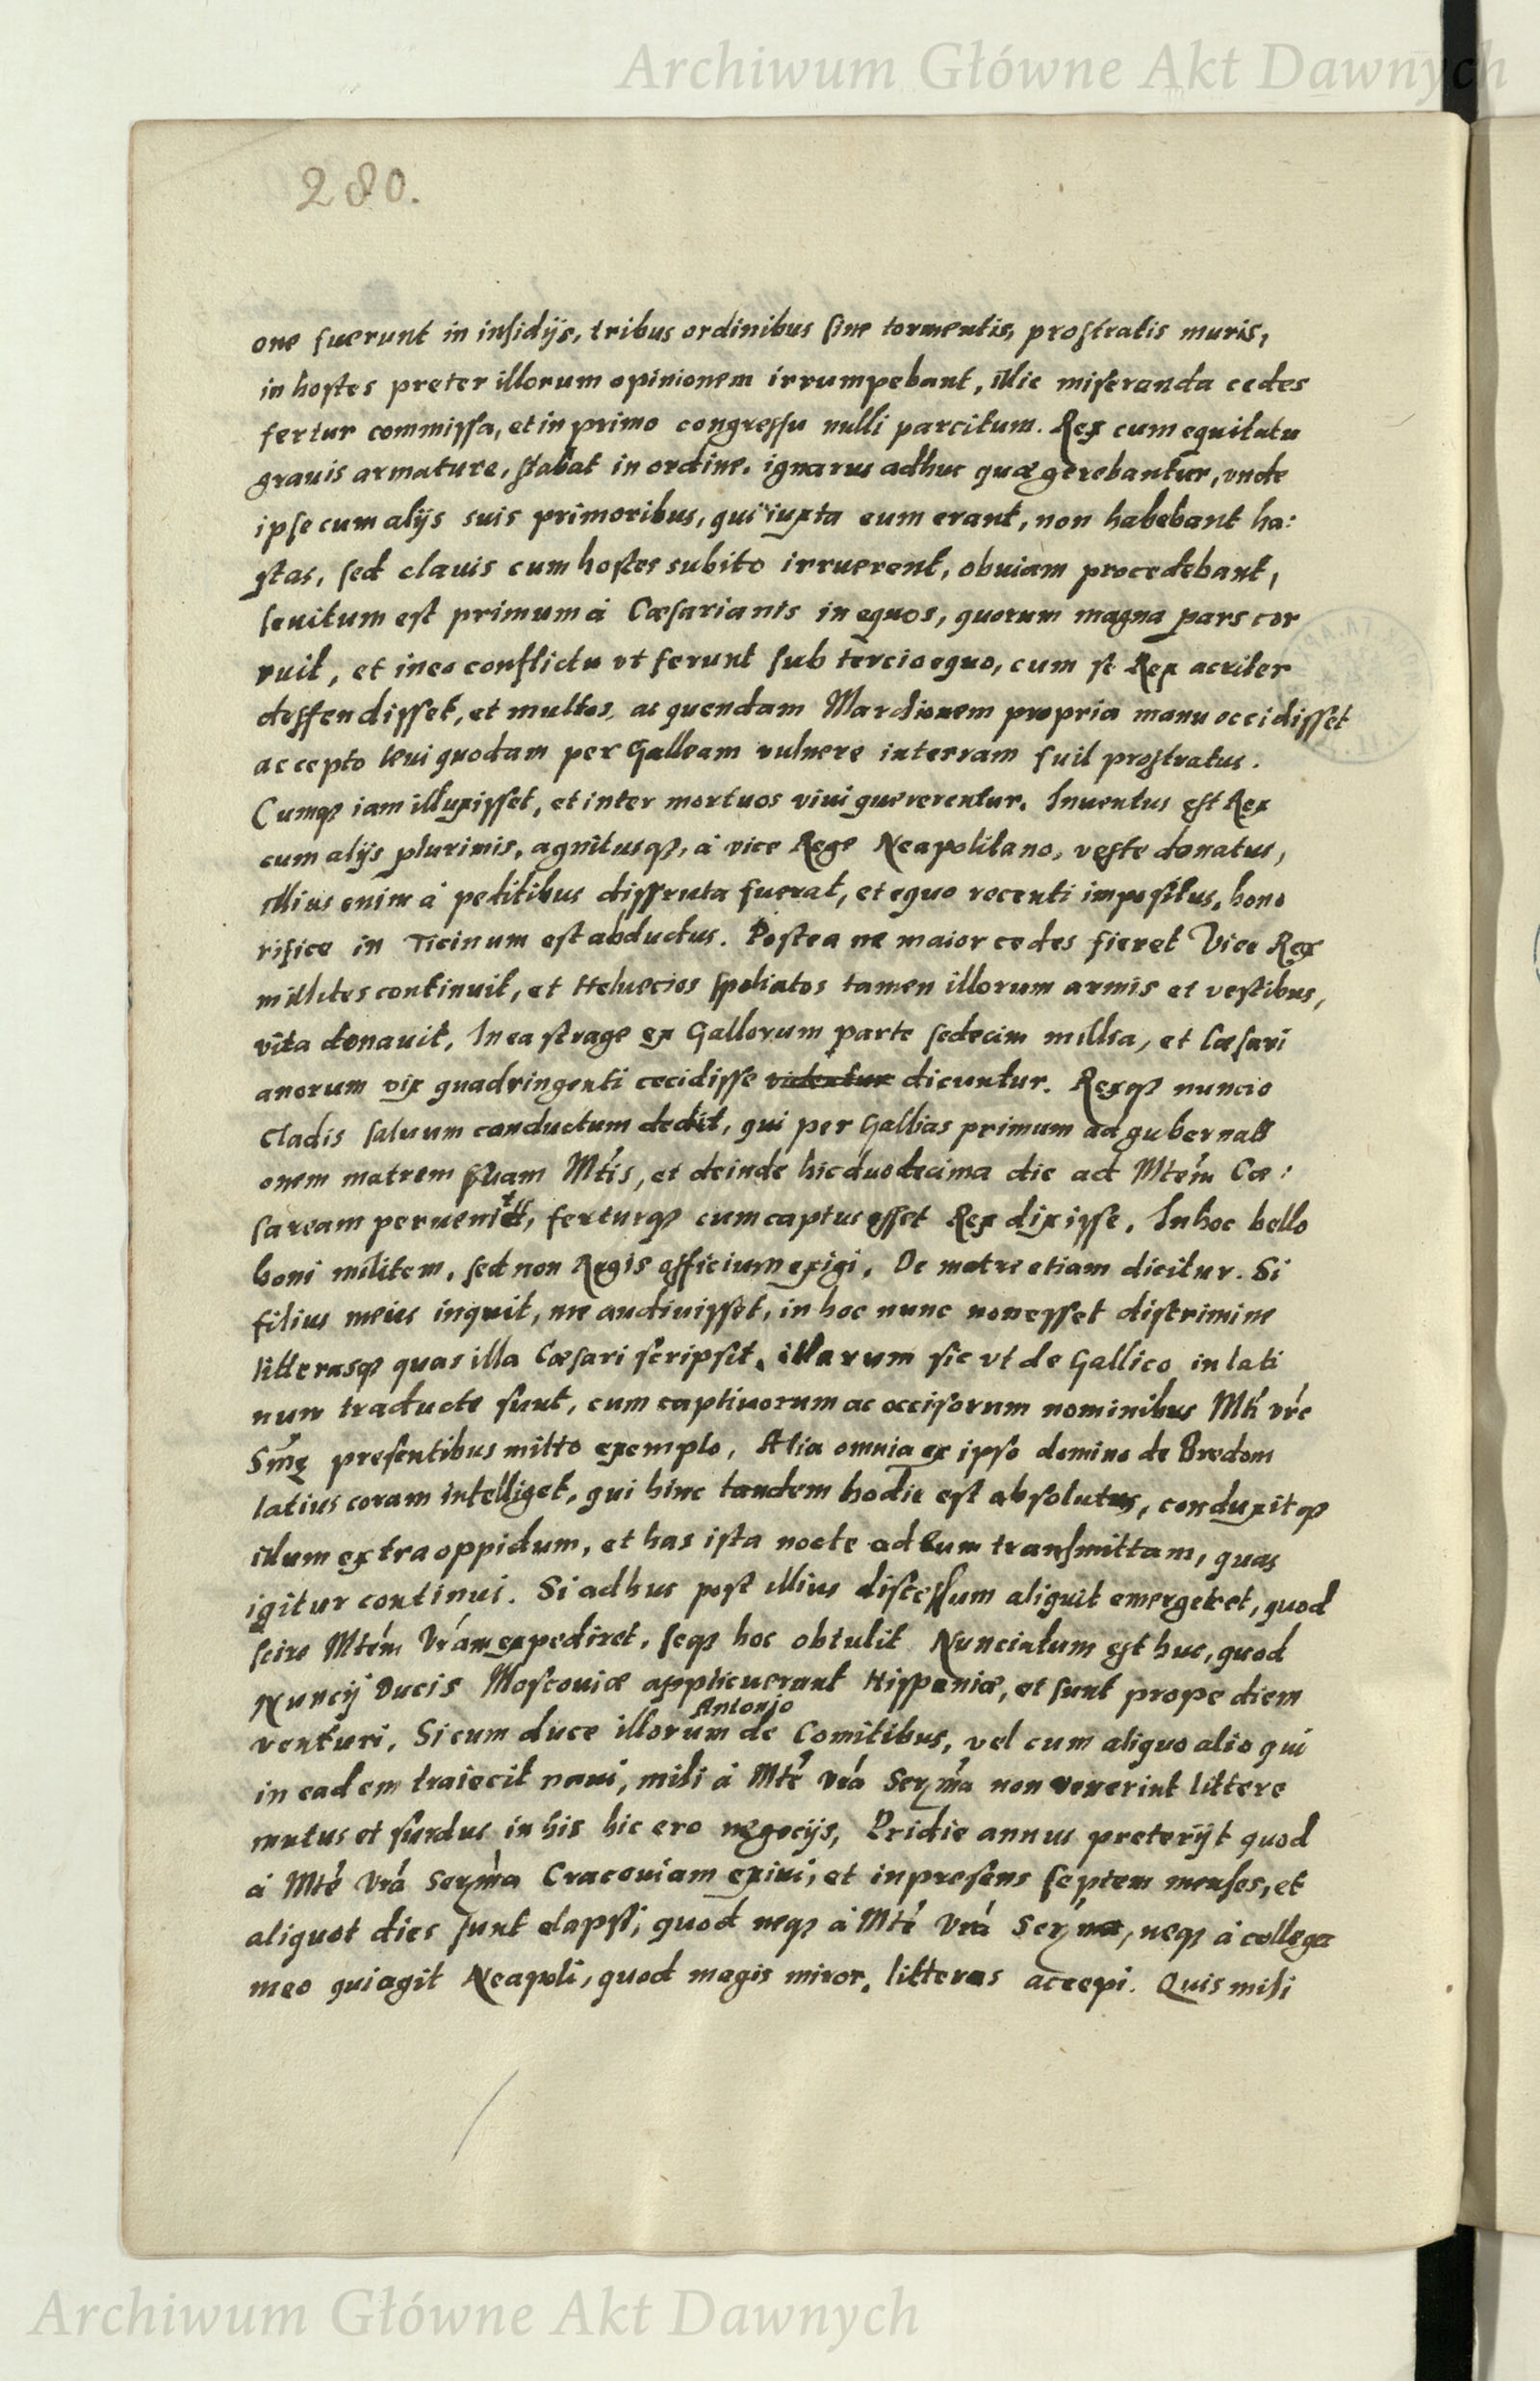 Archiwum Główne Akt Dawnych
280.
one fuerunt in insidijs, tribus ordinibus sine tormentis, prostratis muris,
in hostes preter illorum opinionem irrumpebant, illic miseranda cedes
fertur commissa, et in primo congressu nulli parcitum. Rex cum equitatu
grauis armature, stabat in ordine, ignarus adhuc quæ gerebantur, vnde
ipse cum alijs suis primoribus, qui iuxta eum erant, non habebant ha:
stas, sed clauis cum hostes subito irruerent, obuiam procedebant,
seuitum est primum à Cæsarianis in equos, quorum magna pars cor
ruit, et in eo conflictu vt ferunt sub tercio equo, cum se Rex acriter
deffendisset, et multos, ac quendam Mardionem propria manu occidisset
accepto leui quodam per Galleam vulnere in terram fuit prostratus.
Cumq3 iam illuxisset, et inter mortuos viui quererentur. Inuentus est Rex
cum alijs plurimis, agnitusq3, à vice Rege Neapolitano, veste donatus,
illius enim à peditibus disrruta fuerat, et equo recenti impositus, hono
rifice in Ticinum est abductus. Postea ne maior cedes fieret Vice Rex
millites continuit, et Heluecios spoliatos tamen illorum armis et vestibus,
vita donauit. In ea strage ex Gallorum parte sedecim millia, et Cæsari
anorum vix quadringenti cecidisse videntur dicuntur. Rexq3 nuncio
cladis saluum conductum dedit, qui per Gallias primum ad gubernati
onem matrem suam Mtis, et deinde hic duodecima die ad Mtem Cæ:
saream peruenit, ferturq3 cum captus esset Rex dixisse. In hoc bello
boni militem, sed non Regis officium exigi. De matre etiam dicitur. Si
filius meus inquit, me audiuisset, in hoc nunc non esset discrimine
litterasq3 quas illa Cæsari scripsit, illarum sic vt de Gallico in lati
num traducte sunt, cum captiuorum ac occisorum nominibus Mti vre
Sme presentibus mitto exemplo, Alia omnia ex ipso domino de Bredom
latius coram intelliget, qui hinc tandem hodie est absolutus, conduxitq3
illum extra oppidum, et has ista nocte ad eum transmittam, quas
igitur continui. Si adhuc post illius discessum aliquit emergeret, quod
scire Mtem Vram expediret, seq3 hoc obtulit Nunciatum est huc, quod
Nuncij Ducis Moscouiæ applicuerant Hispaniæ, et sunt prope diem
venturi. Si cum duce illorum Antonio de Comitibus, vel cum aliquo alio qui
in eadem traiecit naui, mihi à Mte Vra Serma non venerint littere
mutus et surdus in his hic ero negocijs, Pridie annus preterijt quod
à Mte Vra Serma Cracouiam exiui, et in presens septem menses, et
aliquot dies sunt elapsi, quod neq3 à Mte Vra Serma, neq3 à collega
meo qui agit Neapoli, quod magis miror, litteras accepi. Quis mihi
Archiwum Główne Akt Dawnych